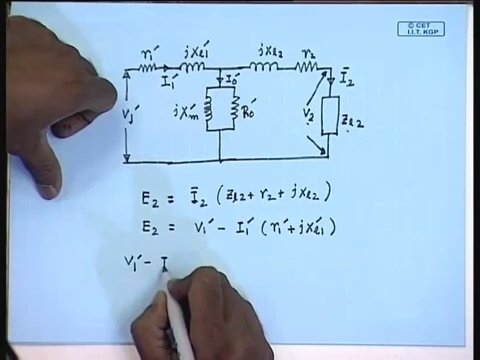 © CET
I.I.T. KGP
r₁′ jXℓ₁′ jXℓ₂ r₂
I₁′ I₀′ Ī₂
V₁′ jXm′ R₀′ V₂ Zℓ₂
E₂ = Ī₂ (Zℓ₂ + r₂ + jxℓ₂)
E₂ = V₁′ − I₁′ (r₁′ + jXℓ₁′)
V₁′ − I